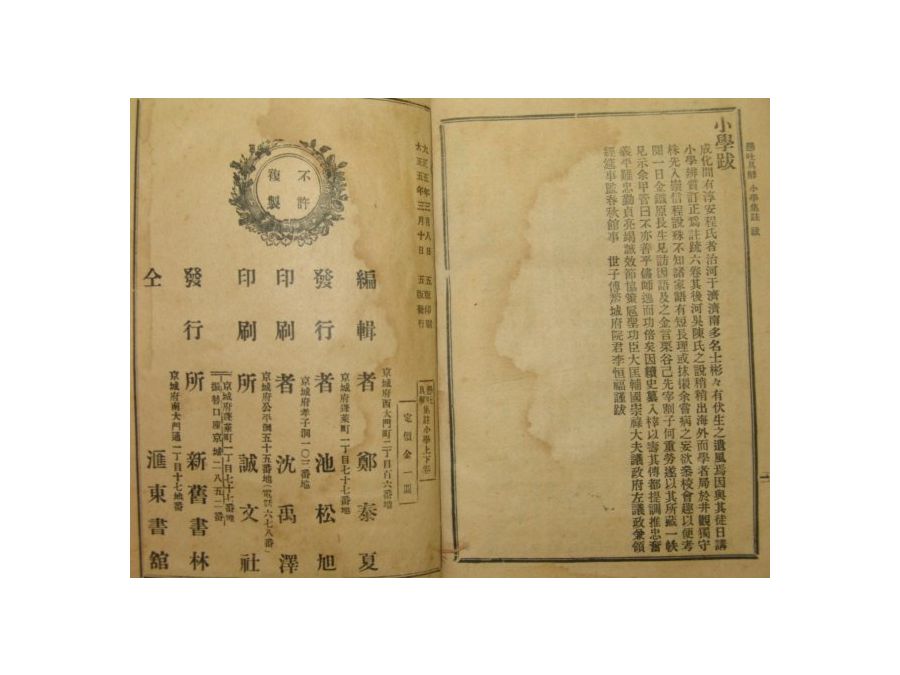 懸吐具解 小學集註 跋
小學跋
成化間有淳安程氏者治河于濟濟南多名士彬々有伏生之遺風焉因與其徒日講
小學辨嘗訂正爲註䟽六卷其後河吳陳氏之說稍稍出海外而學者局於井觀獨守
株先入崇信程說殊不知諸家語有短長理或抹摋余嘗病之妄欲叅校會趣以便考
閱一日金鐵原長生見訪因語及之金言栗谷己先宰割子何重勞遂以其所藏一帙
見示余甲管曰不亦善乎儘師逸而功倍矣因續史纂入梓以壽其傳都提調推忠奮
義平難忠勤貞亮竭誠效節協策扈聖功臣大匡輔國崇祿大夫議政府左議政兼領
經筵事監春秋館事 世子傅鰲城府院君李恒福謹跋
一
不許
複製
大正五年三月八日 五版印刷
大正五年三月十日 五版發行
集註小學上下卷
定價金一圓
京城府西大門町二丁目百六番地
編輯者 鄭泰夏
京城府蓬萊町一丁目七十七番地
發行者 池松旭
京城府孝子洞一〇二番地
印刷者 沈禹澤
京城府公平洞五十五番地(電話六七八番)
印刷所 誠文社
京城府蓬萊町一丁目七十七番地
振替口座京城二八五二番
發行所 新舊書林
京城府南大門通一丁目十七地番
仝 滙東書舘